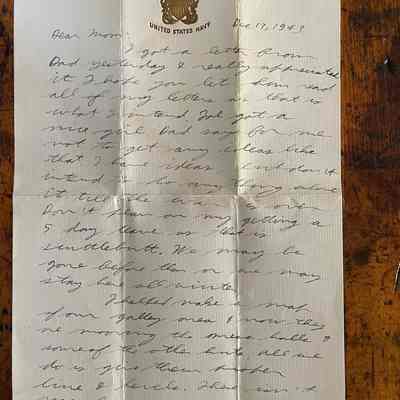 UNITED STATES NAVY
Dec. 17, 1943
Dear Mom:
I got a letter from
Dad yesterday & really appreciated
it. I hope you let him read
all of my letters as that is
what I intend. I've got a
nice girl. Dad says for me
not to get any ideas like
that I have ideas but don't
intend to do any thing about
it till the war is over.
Don't plan on my getting a
5 day leave as that is
scuttlebutt. We may be
gone before then or we may
stay here all winter.
I helped make a map
of our galley area & now they
are moving the mess halls &
some of the other huts. All we
do is give them
line & levels. There isn't